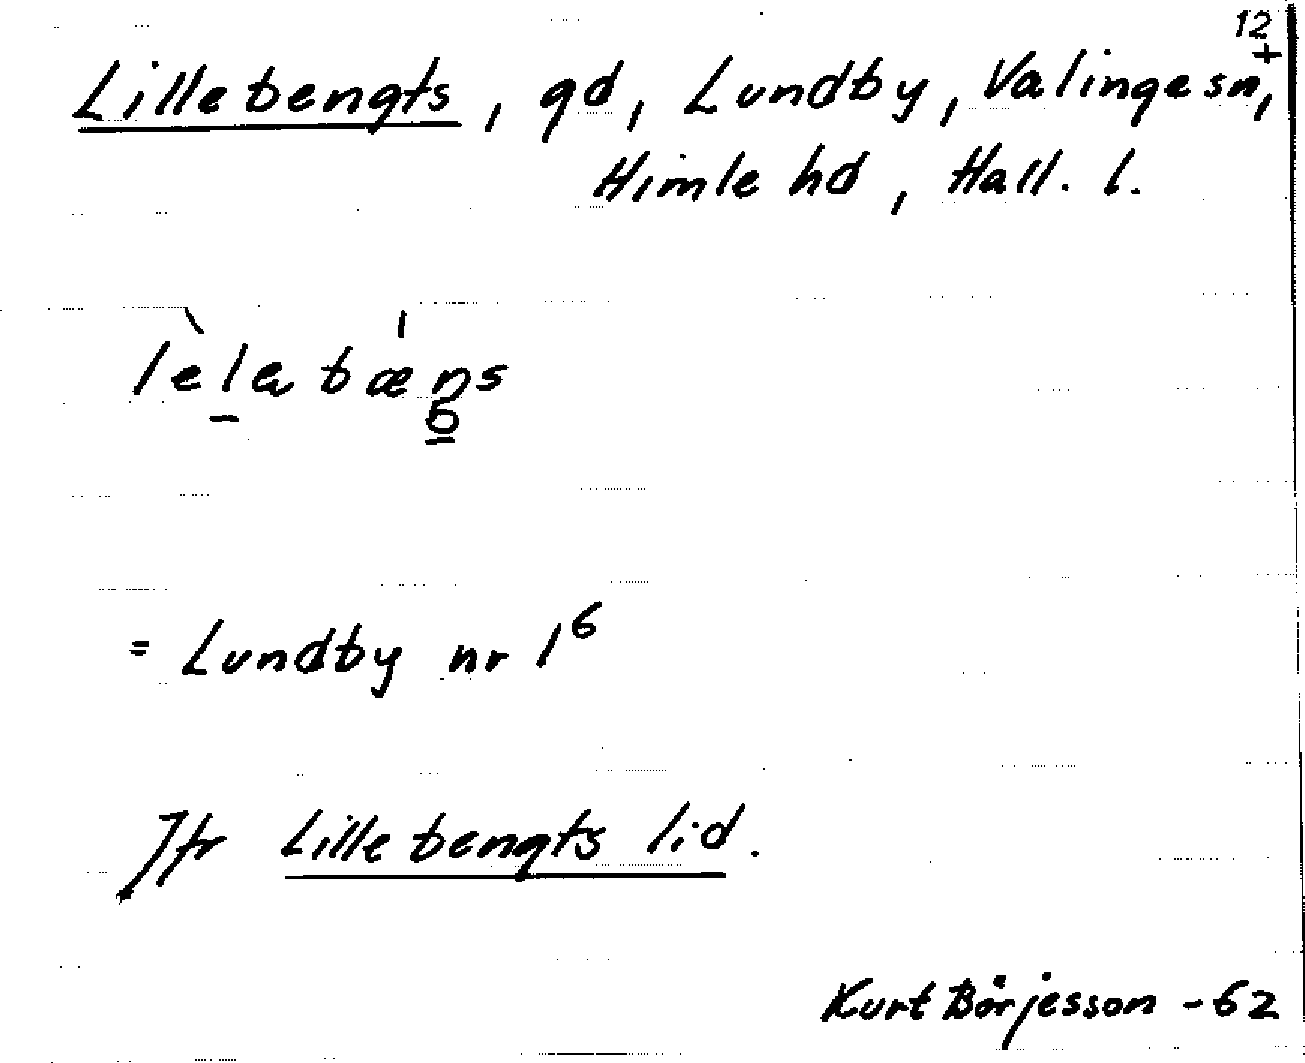 12
+
Lillebengts, gd, Lundby, Valinge sn,
Himle hd, Hall. l.
= Lundby nr 1⁶
Jfr Lillebengts lid.
Kurt Börjesson -62